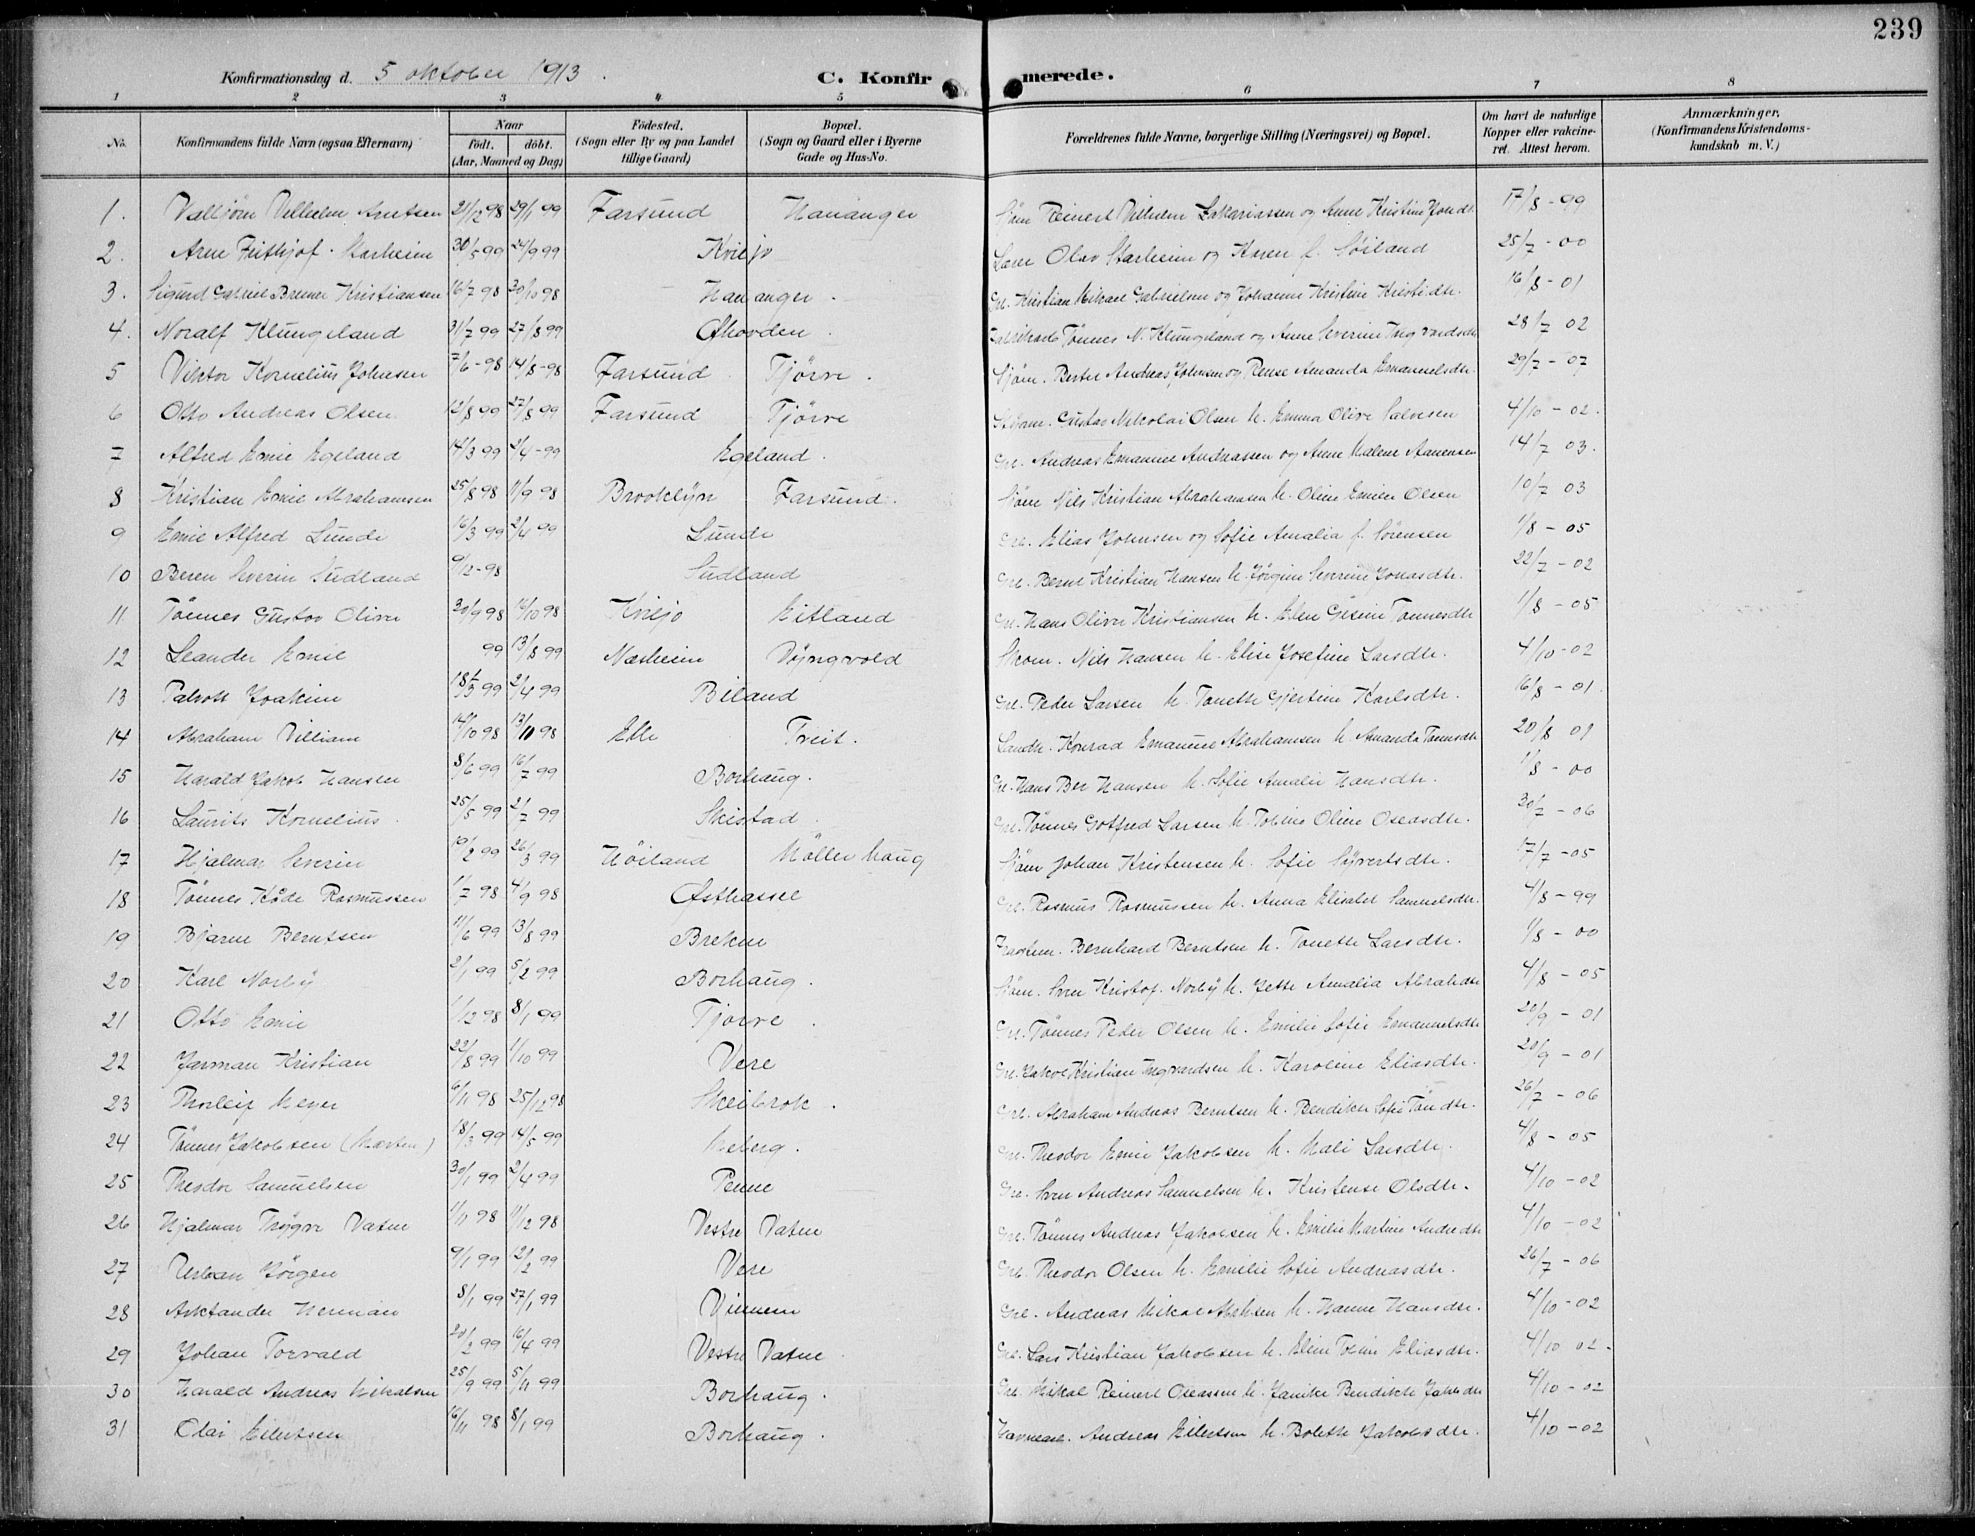 239
Konfirmationsdag d. 5 oktober 1913. C. Konfirmerede.
1 2 3 4 5 6 7 8
No. Konfirmandens fulde Navn (ogsaa Efternavn) Naar født. døbt. (Aar, Maaned og Dag) Fødested. (Sogn eller By og paa Landet tillige Gaard) Bopæl. (Sogn og Gaard eller i Byerne Gade og Hus-No. Forældrenes fulde Navne, borgerlige Stilling (Næringsvei) og Bopæl. Om havt de naturlige Kopper eller vakcineret. Attest herom. Anmærkninger. (Konfirmandens Kristendomskundskab m. V.)
1. Valbjørn Vilhelm Arntsen 21/12 98 29/1 99 Farsund Hananger Sjøm Reinert Vilhelm Zakariassen og Anne Kristine 17/8 - 99
2. Arne Frithjof Starheim 30/5 99 24/9 99 Kviljo Lærer Olav Starheim og Karen f. Søiland 25/7 - 00
3. Sigurd Gabriel Kristiansen 16/7 98 30/10 98 Hananger Gbr. Kristian Mikael Gabrielsen og Johanne Kristine Kristidtr. 16/8 - 01
4. Noralf Klungeland 31/7 99 27/8 99 Tønnes N. Klungeland og Anne Severine Ingvardsdtr 28/7 02
5 Viktor Kornelius Johnsen 7/6 - 98 14/8 - 98 Farsund Tjørve. Sjøm. Berter Andreas Johnsen og Rense Amanda Emanuelsdtr. 29/7 - 07
6 Otto Andreas Olsen 12/8 99 27/8 99 Farsund Tjørve Gustav Nikolai Olsen h. Emma Olive Salvesen 4/10 - 02.
7 Alfred Emil Egeland 14/3 99 2/4 - 99 Egeland. Gbr. Andreas Emanuel Andreassen og Anne Malene Aanensen 14/7 03.
8 Kristian Emil Abrahamsen 25/8 98 11/9 98 Brooklyn Farsund. Sjøm Nils Kristian Abrahamsen h. Oline Emilie Olsen 10/7 03
9 Emil Alfred Lunde 16/3 99 2/4 99 Lunde Gbr. Elias Johnsen og Sofie Amalia f. Sørensen 1/8 - 05
10 Beren Severin Sudland 9/12 - 98 Sudland Gbr. Bernt Kristian Hansen h. Jørgine Severine Jonasdtr. 22/7 - 02
11 Tønnes Gustav Oliver 30/9 98 Kviljo Eitland Gbr. Hans Oliver Kristiansen h. Elen Gesine Tønnesdtr 1/8 - 05
12 Leander Emil 99 13/8 99 Næsheim Skom. Nils Hansen h. Elise Josefine Larsdtr. 4/10 - 02
13 Joakim 2/4 99 Biland Gbr. Peder Larsen h. Tonette Gjertine Karlsdtr. 16/8 - 01.
14 Abraham Villiam 14/10 98 13/11 98 Elle Treit. Landh. Konrad Emanuel Abrahamsen h. Amanda Tønnsdtr 20/8 01
15 Harald Jakob Hansen 8/6 99 16/7 99 Borhaug. Gbr. Hans Ber Hansen h. Sofie Amalie Hansdtr. 1/8 - 00
16 Laurits Kornelius. 25/5 99 2/7 99 Skistad. Gbr. Tønnes Gotfred Larsen h. Tobine Oline Oseasdtr. 30/7 - 06
17 Hjalmar Severin 19/2 99 26/3 99 Høiland Møllerhaug Sjøm Johan Kristensen h. Sofie Syvertsdtr. 17/7 - 05
18 Tønnes Kåde Rasmussen 1/7 98 4/9 98 Østhassel Gbr. Rasmus Rasmussen h. Anna Elisabet Samuelsdtr. 4/8 - 99
19 Bjarne Berntsen 11/6 99 13/8 99 Brekne Bernhard Berntsen h. Tonette Larsdtr. 1/8 - 00
20 Karl Norby 2/1 99 5/2 99 Borhaug. Sjøm. Sven Kristof. Norby h. Jette Amalia Abrahdtr 4/8 - 05
21 Otto Emil 1/12 98 8/1 99 Tjørve. Gbr. Tønnes Peder Olsen h. Emilie Sofie Emanuelsdtr 20/9 - 01
22 Jarman Kristian 22/8 99 1/10 99 Vere Gbr. Jakob Kristian Ingvardsen h. Karoline Eliasdtr. 20/9 - 01
23 Thorleif Meyer 6/11 98 25/12 98 Skeibrok. Gbr. Abraham Andreas Berntsen h. Bendikte Sofie Tøndtr. 26/7 - 06
24 Tønnes Jakobsen (Morten) 18/3 99 14/5 99 Meberg. Gbr. Theodor Emil Jakobsen h. Mali Larsdtr. 4/8 - 05
25 Theodor Samuelsen 30/1 99 2/4 99 Penne Gbr. Sven Andreas Samuelsen h. Kristense Olsdtr. 4/10 - 02
26 Hjalmar Trygve Vatne 1/11 98 11/12 98 Vestre Vatne Gbr. Tønnes Andreas Jakobsen h. Emilie Martine Andrdtr 4/10 - 02
27 Urban Jørgen 9/1 99 12/2 99 Vere Gbr. Theodor Olsen h. Emilie Sofie Andreasdtr. 26/7 - 06
28 Arktander Herman 8/1 99 27/1 99 Vinnem Gbr. Andreas Mikal h. Hanne Hansdtr. 4/10 - 02
29 Johan Torvald 20/2 99 16/4 99 Vestre Vatne Gbr. Lars Kristian Jakobsen h. Eline Tobine Eliasdtr. 4/10 02.
30 Harald Andreas Mikalsen 25/9 99 5/11 99 Borhaug. Gbr. Mikal Reinert Oseassen h. Janike Bendikte Jakobdtr 4/10 - 02
31 Olai Eilertsen 16/11 98 8/1 99 Borhaug. Andreas Eilertsen h. Bolette Jakobsdtr. 4/10 - 02